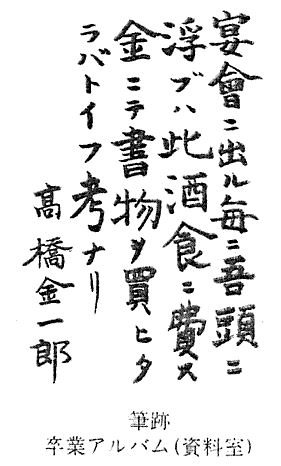 宴會ニ出ル毎ニ吾頭ニ
浮ブハ此酒食ニ費ス
金ニテ書物ヲ買ヒタ
ラバトイフ考ナリ
高橋金一郎
筆跡
卒業アルバム(資料室)